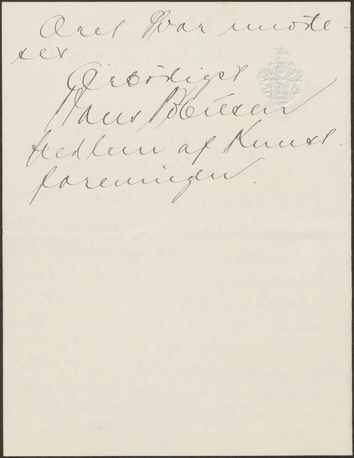 Øret Svar imøde-
ses
Ærbødigst
Hans
Medlem af Kunst
foreningen